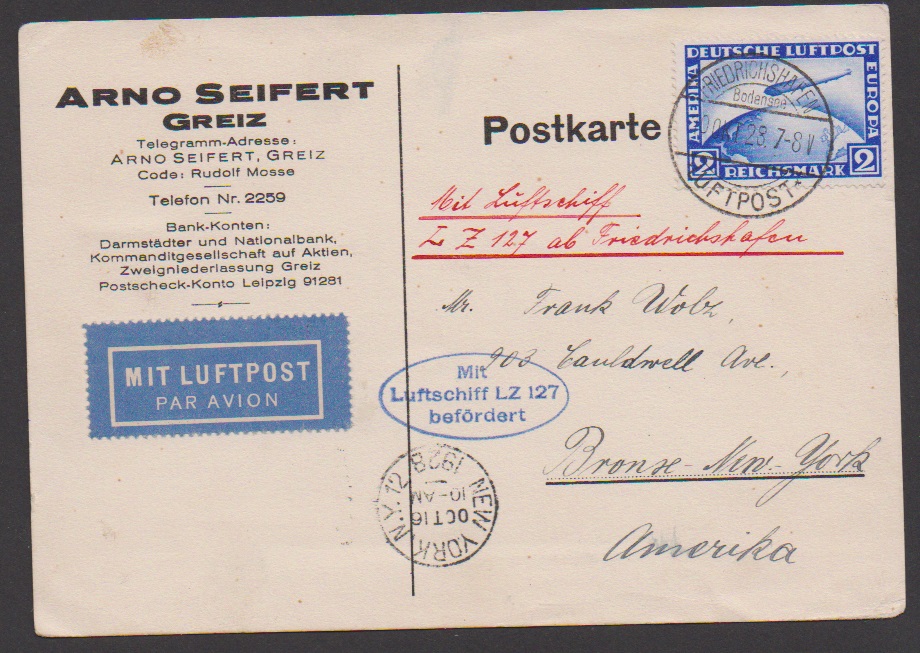 ARNO SEIFERT
GREIZ
Telegramm-Adresse:
ARNO SEIFERT, GREIZ
Code: Rudolf Mosse
Telefon Nr. 2259
Bank-Konten:
Darmstädter und Nationalbank,
Kommanditgesellschaft auf Aktien,
Zweigniederlassung Greiz
Postscheck-Konto Leipzig 91281
MIT LUFTPOST
PAR AVION
Postkarte
DEUTSCHE LUFTPOST
AMERIKA
EUROPA
2 REICHSMARK 2
FRIEDRICHSHAFEN
Bodensee
OKT 28. 7-8 V
LUFTPOST
Mit Luftschiff
L Z 127 ab Friedrichshafen
Mr. Frank Wolz,
903 Cauldwell Ave.,
Bronse-New-York
Amerika
Mit
Luftschiff LZ 127
befördert
NEW YORK, N.Y. 12
OCT 16
10-AM
1928